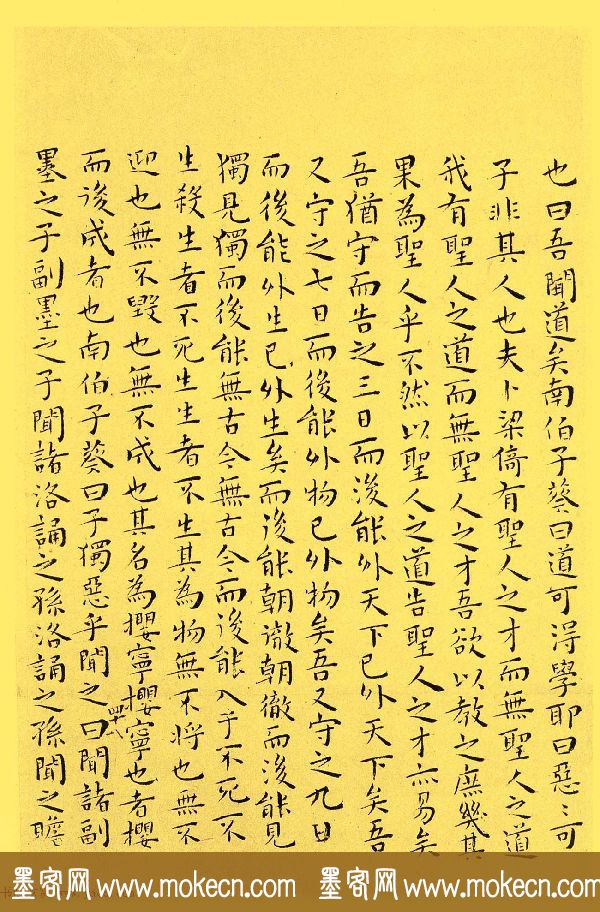 也曰吾聞道矣南伯子葵曰道可得學耶曰惡〻可
子非其人也夫卜梁倚有聖人之才而無聖人之道
我有聖人之道而無聖人之才吾欲以教之庶幾其
果為聖人乎不然以聖人之道告聖人之才亦易矣
吾猶守而告之三日而後能外天下已外天下矣吾
又守之七日而後能外物已外物矣吾又守之九日
而後能外生已外生矣而後能朝徹朝徹而後能見
獨見獨而後能無古今無古今而後能入乎不死不
生殺生者不死生生者不生其為物無不將也無不
迎也無不毀也無不成也其名為攖寧攖寧也者攖
四十八
而後成者也南伯子葵曰子獨惡乎聞之曰聞諸副
墨之子副墨之子聞諸洛誦之孫洛誦之孫聞之瞻
墨客网 www.mokecn.com 墨客网 www.mokecn.com